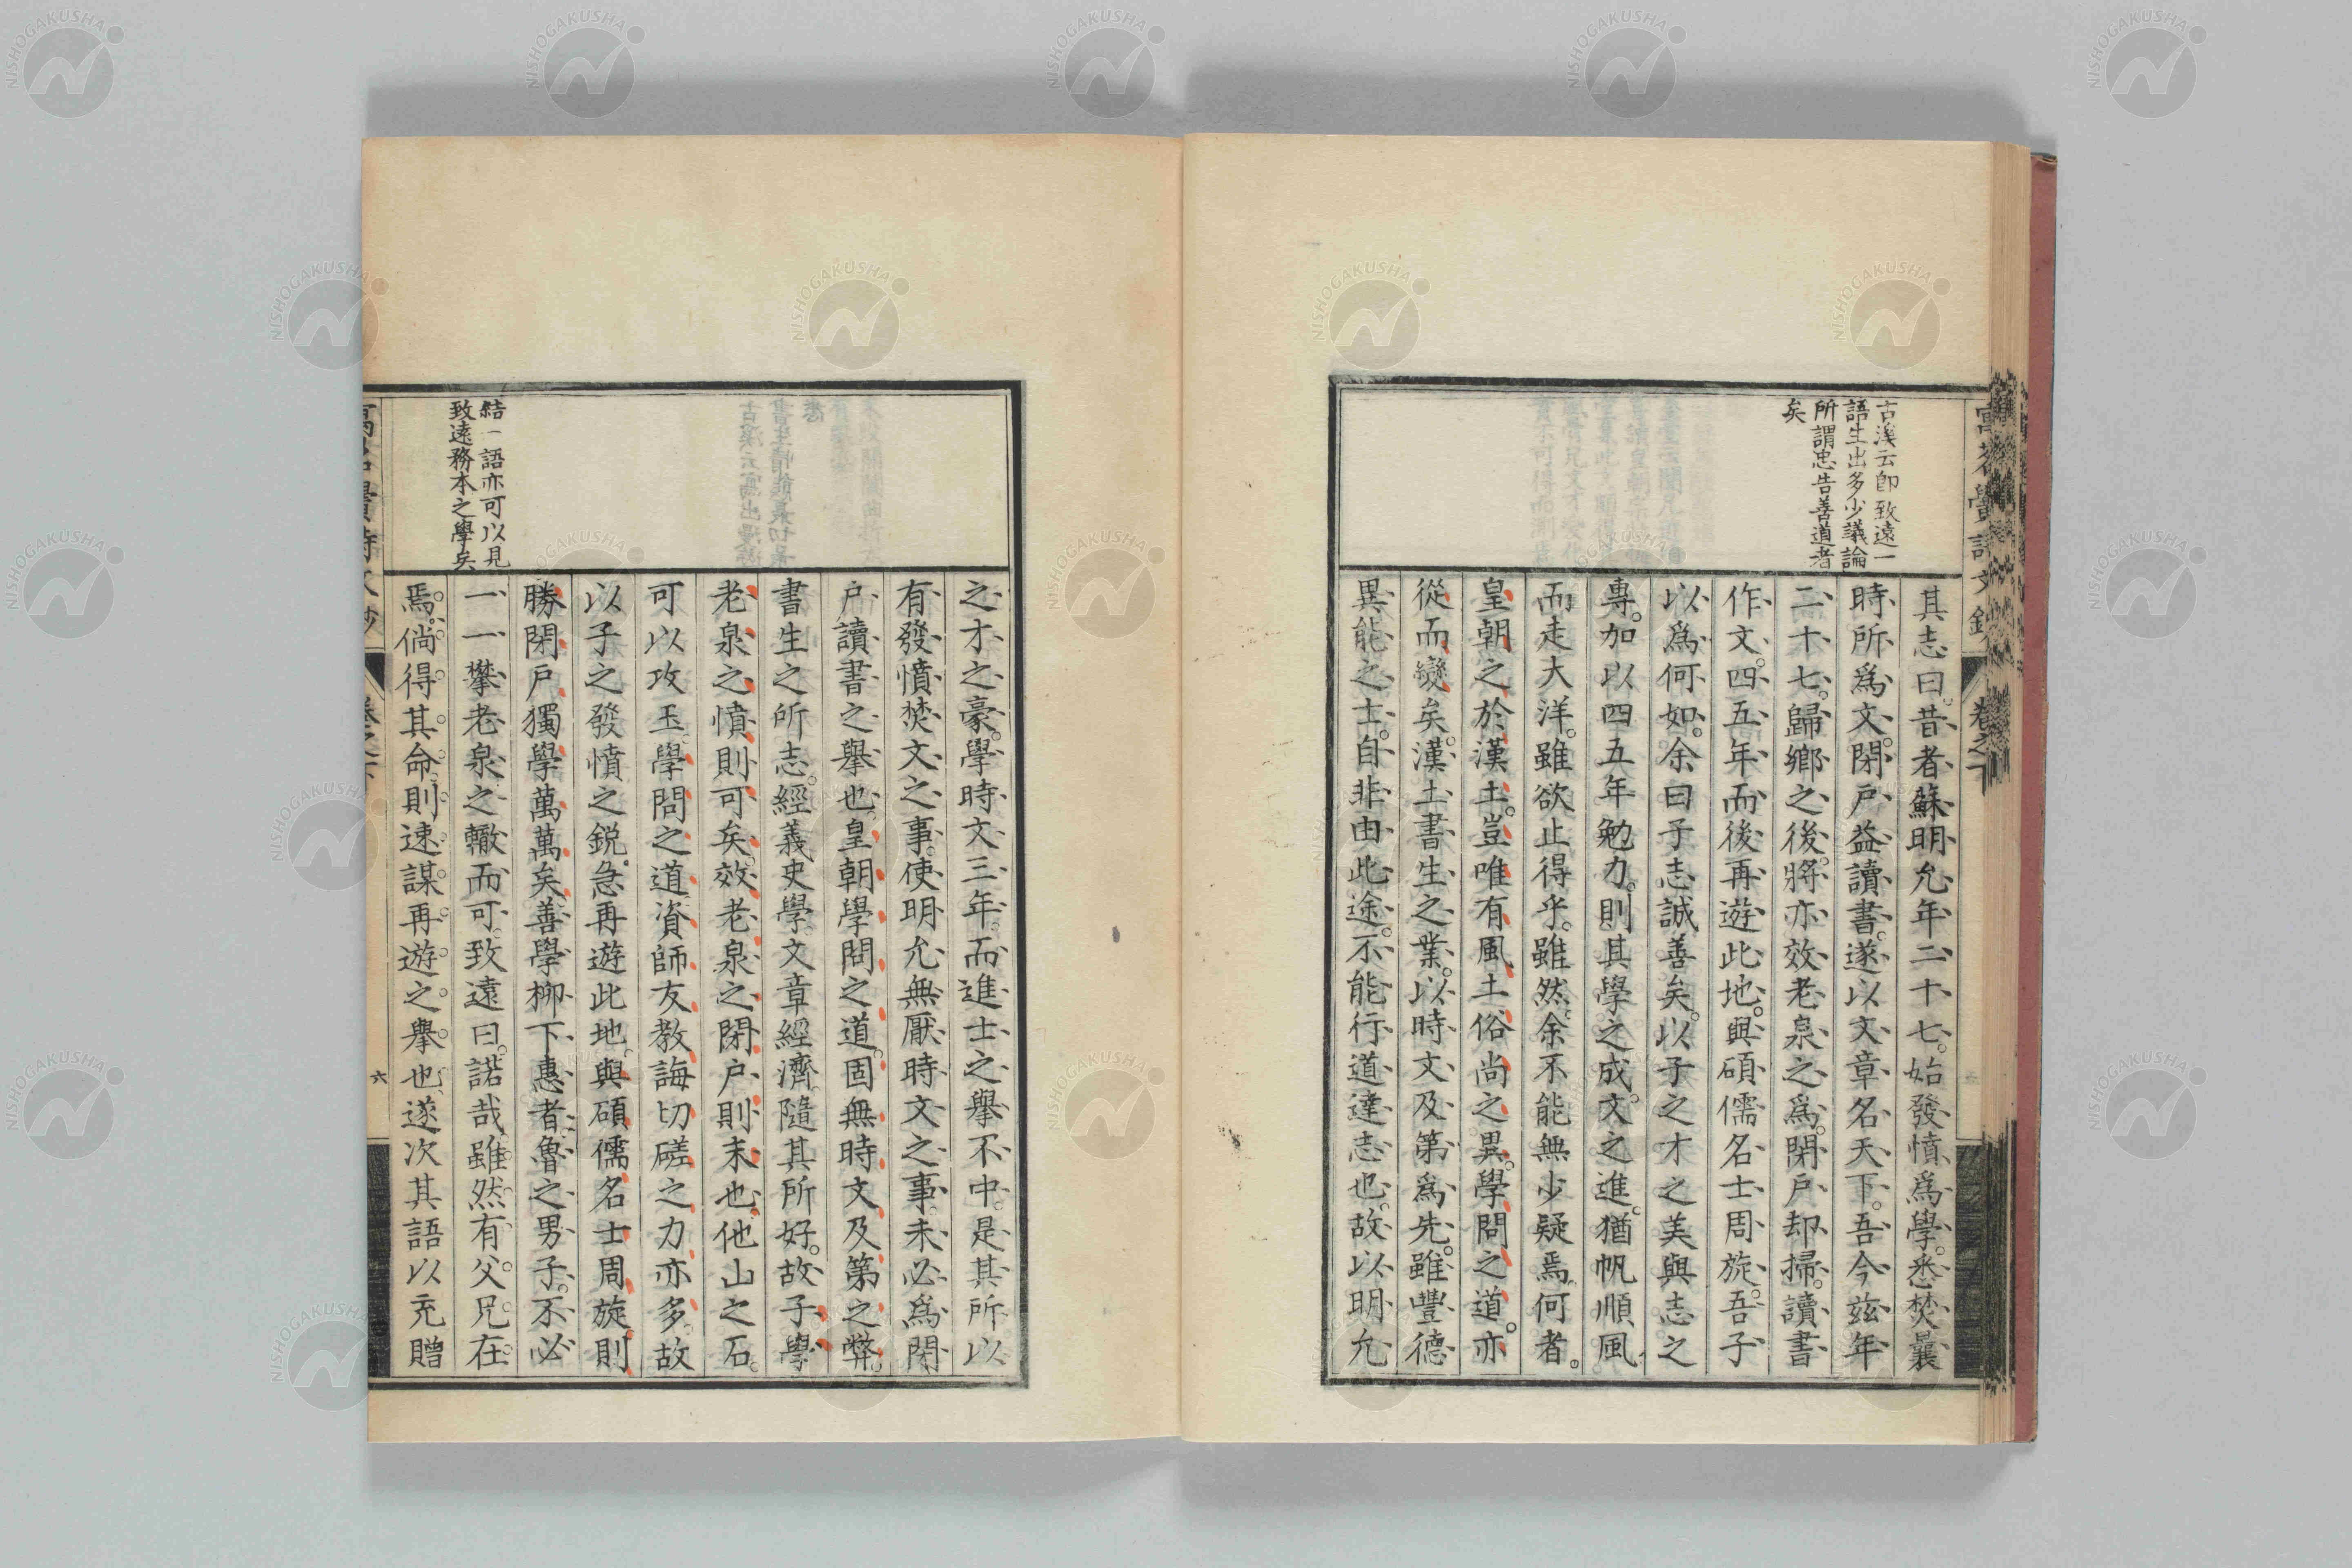 古溪云卽致遠一
語生出多少議論
所謂忠告善道者
矣
其志曰昔者蘇明允年二十七始發憤爲學悉焚曩
時所爲文閉戸益讀書遂以文章名天下吾今玆年
二十七歸鄉之後將亦效老泉之爲閉戸却掃讀書
作文四五年而後再遊此地與碩儒名士周旋吾子
以爲何如余曰子志誠善矣以子之才之美與志之
專加以四五年勉力則其學之成文之進猶帆順風
而走大洋雖欲止得乎雖然余不能無少疑焉何者
皇朝之於漢土豈唯有風土俗尚之異學問之道亦
從而變矣漢土書生之業以時文及第爲先雖豐德
異能之士自非由此途不能行道達志也故以明允
之才之豪學時文三年而進士之擧不中是其所以
有發憤焚文之事使明允無厭時文之事未必爲閉
戸讀書之擧也皇朝學問之道固無時文及第之弊
書生之所志經義史學文章經濟隨其所好故子學
老泉之憤則可矣效老泉之閉戸則末也他山之石
可以攻玉學問之道資師友教誨切磋之力亦多故
以子之發憤之鋭急再遊此地與碩儒名士周旋則
勝閉戸獨學萬萬矣善學柳下惠者魯之男子不必
一一攀老泉之轍而可致遠曰諾哉雖然有父兄在
焉倘得其命則速謀再遊之擧也遂次其語以充贈
結一語亦可以見
致遠務本之學矣
六
NISHOGAKUSHA